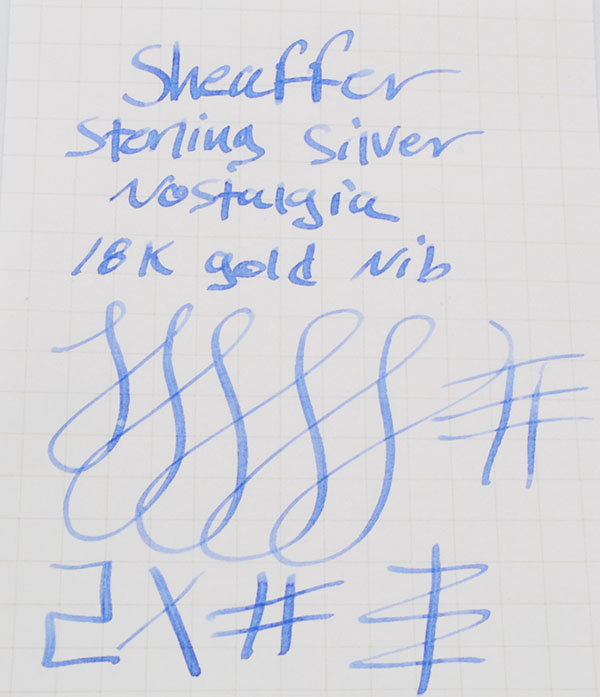 Sheaffer
Sterling Silver
Nostalgia
18K gold Nib